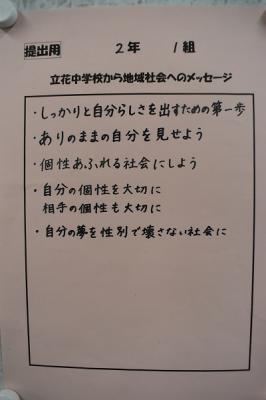 提出用 2年 1組
立花中学校から地域社会へのメッセージ
・しっかりと自分らしさを出すための第一歩
・ありのままの自分を見せよう
・個性あふれる社会にしよう
・自分の個性を大切に
相手の個性も大切に
・自分の夢を性別で壊さない社会に